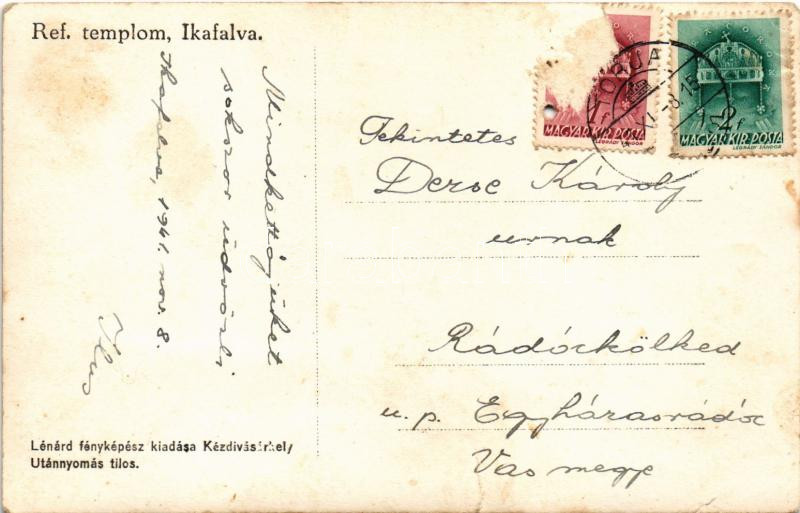 Ref. templom, Ikafalva.
Mindkettőjüket
sokszor üdvözli
Ikafalva, 1941. nov. 8.
Ilus
Lénárd fényképész kiadása Kézdivásárhely
Utánnyomás tilos.
1 f
MAGYAR KIR. POSTA
LÉGRÁDY SÁNDOR
2 f
MAGYAR KIR. POSTA
LÉGRÁDY SÁNDOR
Tekintetes
Derse Károly
urnak
Rádóckölked
u. p. Egyházasrádóc
Vas megye